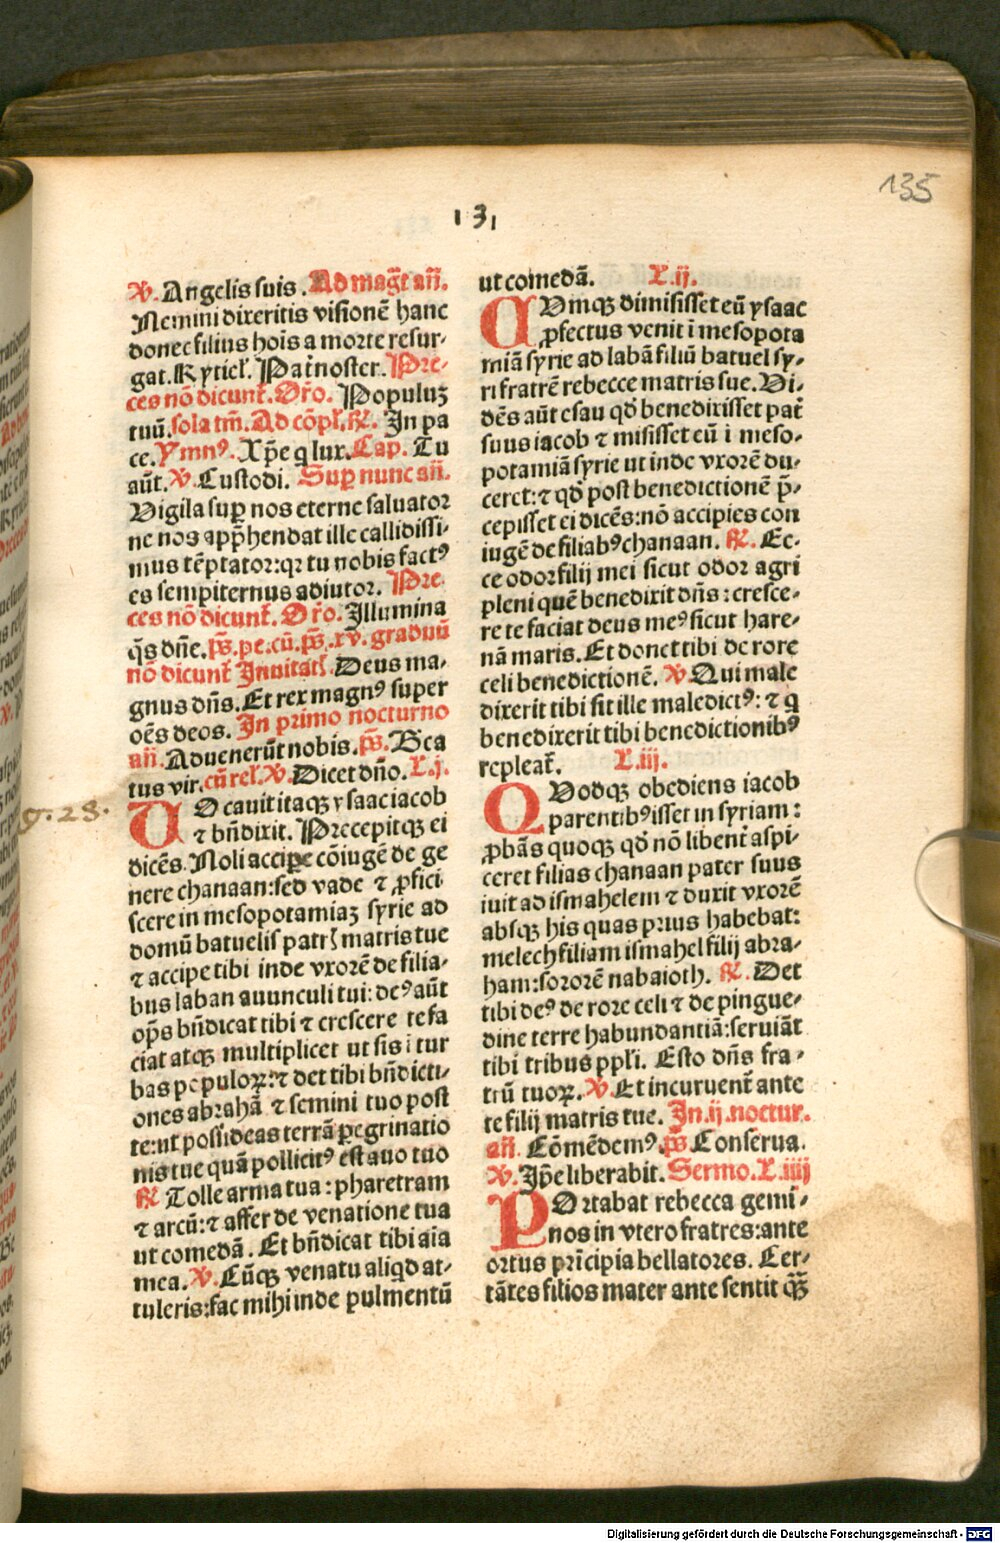 135
131
℣. Angelis suis. Ad mag̃t añ.
Nemini dixeritis visionẽ hanc
donec filius hoĩs a morte resur-
gat. Kyriel’. Pat̃ noster. Pre-
ces nõ dicunt᷑. Or̃o. Populuꝫ
tuũ. sola tm̃. Ad cõpl’. ℟. In pa
ce. Ymnꝰ. Xp̃e q lux. Cap. Tu
aũt. ℣. Custodi. Suꝑ nunc añ.
Vigila suꝑ nos eterne saluator
ne nos app̃hendat ille callidissi-
mus tẽptator: qꝛ tu nobis factꝰ
es sempiternus adiutor. Pre
ces nõ dicunt᷑. Or̃o. Illumina
q̃s dñe. p̃s. pe. cũ. p̃s. xv. graduũ
nõ dicunt᷑ Inuitatꝭ. Deus ma-
gnus dñs. Et rex magnꝰ super
oẽs deos. In primo nocturno
añ. Aduenerũt nobis. p̃s. Bea
tus vir. cũ rel’. ℣. Dicet dño. L. j.
VOcauit itaqꝫ ysaac iacob
⁊ bñdixit. Precepitqꝫ ei
dicẽs. Noli acciꝑe cõiugẽ de ge
nere chanaan: sed vade ⁊ ꝓfici
scere in mesopotamiaꝫ syrie ad
domũ batuelis patrꝭ matris tue
⁊ accipe tibi inde vxorẽ de filia-
bus laban auunculi tui: deꝰ aũt
op̃s bñdicat tibi ⁊ crescere te fa
ciat atqꝫ multiplicet ut sis ĩ tur
bas populoꝝ: ⁊ det tibi bñdicti-
ones abrahã ⁊ semini tuo post
te: ut possideas terrã ꝑegrinatio
nis tue quã pollicitꝰ est auo tuo
℟ Tolle arma tua: pharetram
⁊ arcũ: ⁊ affer de venatione tua
ut comedã. Et bñdicat tibi aĩa
mea. ℣. Cũqꝫ venatu aliqd at-
tuleris: fac mihi inde pulmentũ
g. 28.
ut comedã. L. ij.
CVmqꝫ dimisisset eũ ysaac
ꝓfectus venit ĩ mesopota
miã syrie ad labã filiũ batuel sy-
ri fratrẽ rebecce matris sue. Vi-
dẽs aũt esau qd̾ benedixisset pat᷑
suus iacob ⁊ misisset eũ ĩ meso-
potamiã syrie ut inde vxorẽ du-
ceret: ⁊ qd̾ post benedictionẽ p̃-
cepisset ei dicẽs: nõ accipies con
iugẽ de filiabꝰ chanaan. ℟. Ec-
ce odor filij mei sicut odor agri
pleni quẽ benedixit dñs: cresce-
re te faciat deus meꝰ sicut hare-
nã maris. Et donet tibi de rore
celi benedictionẽ. ℣. Qui male
dixerit tibi sit ille maledictꝰ: ⁊ q
benedixerit tibi benedictionibꝰ
repleat᷑. L. iij.
QVodqꝫ obediens iacob
parentibꝰ isset in syriam:
ꝓbãs quoqꝫ qd̾ nõ libent᷑ aspi-
ceret filias chanaan pater suus
iuit ad ismahelem ⁊ duxit vxorẽ
absqꝫ his quas prius habebat:
melech filiam ismahel filij abra-
ham: sororẽ nabaioth. ℟. Det
tibi deꝰ de rore celi ⁊ de pingue-
dine terre habundantiã: seruiãt
tibi tribus ppl’i. Esto dñs fra-
trũ tuoꝝ. ℣. Et incuruent᷑ ante
te filij matris tue. In. ij. noctur.
añ. Cõmẽdemꝰ. p̃s Conserua.
℣. Ip̃e liberabit. Sermo. L. iiij
POrtabat rebecca gemi-
nos in vtero fratres: ante
ortus prĩcipia bellatores. Cer-
tãtes filios mater ante sentit q̃ꝫ
Digitalisierung gefördert durch die Deutsche Forschungsgemeinschaft - DFG